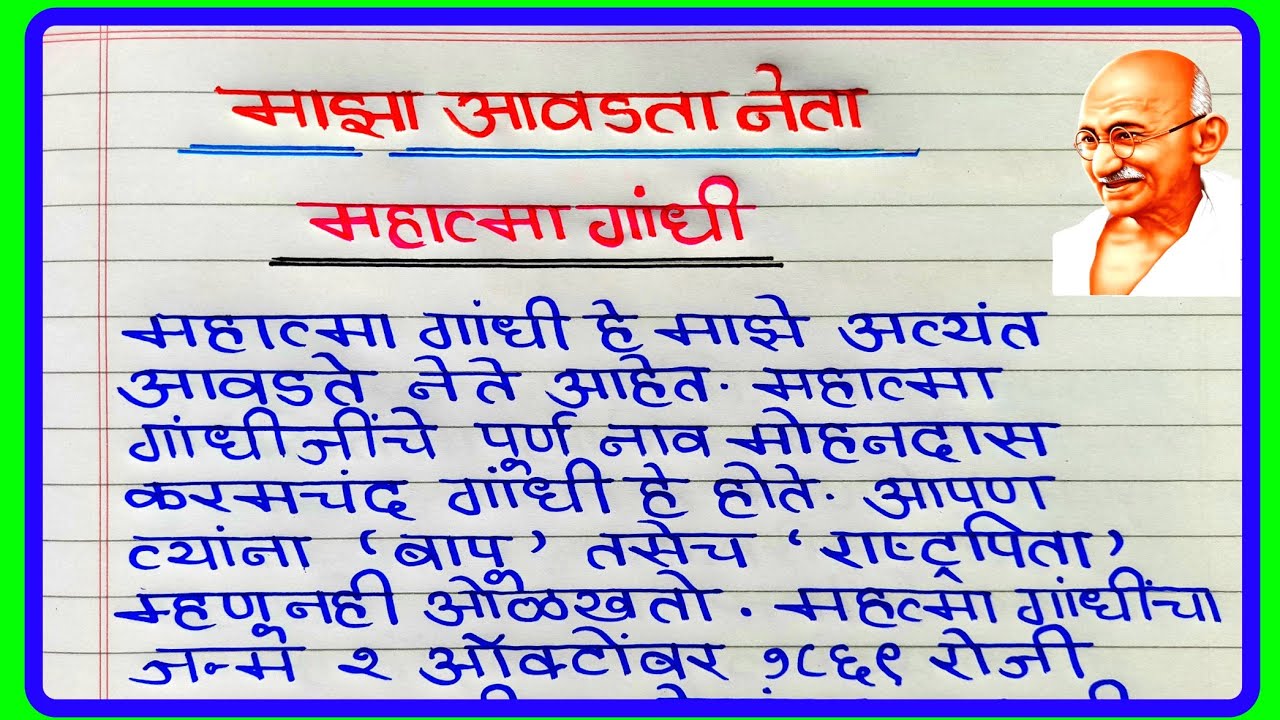 माझा आवडता नेता
महात्मा गांधी
महात्मा गांधी हे माझे अत्यंत
आवडते नेते आहेत. महात्मा
गांधीजींचे पूर्ण नाव मोहनदास
करमचंद गांधी हे होते. आपण
त्यांना 'बापू' तसेच 'राष्ट्रपिता'
म्हणूनही ओळखतो. महत्मा गांधींचा
जन्म २ ऑक्टोंबर १८६९ रोजी